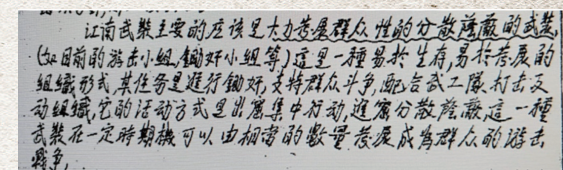 江南武裝主要的应該是大力发展群众性的分散隱蔽的武装,
(如目前的游击小组,鋤奸小组等)这是一種易於生存,易於发展的
组織形式,其任务是進行鋤奸,支持群众斗争,配合武工隊,打击反
动组織,它的活动方式是出寓集中行动,進寓分散隱蔽,這一種
武装在一定時期機可以由相當的數量发展成為群众的游击
戰争,